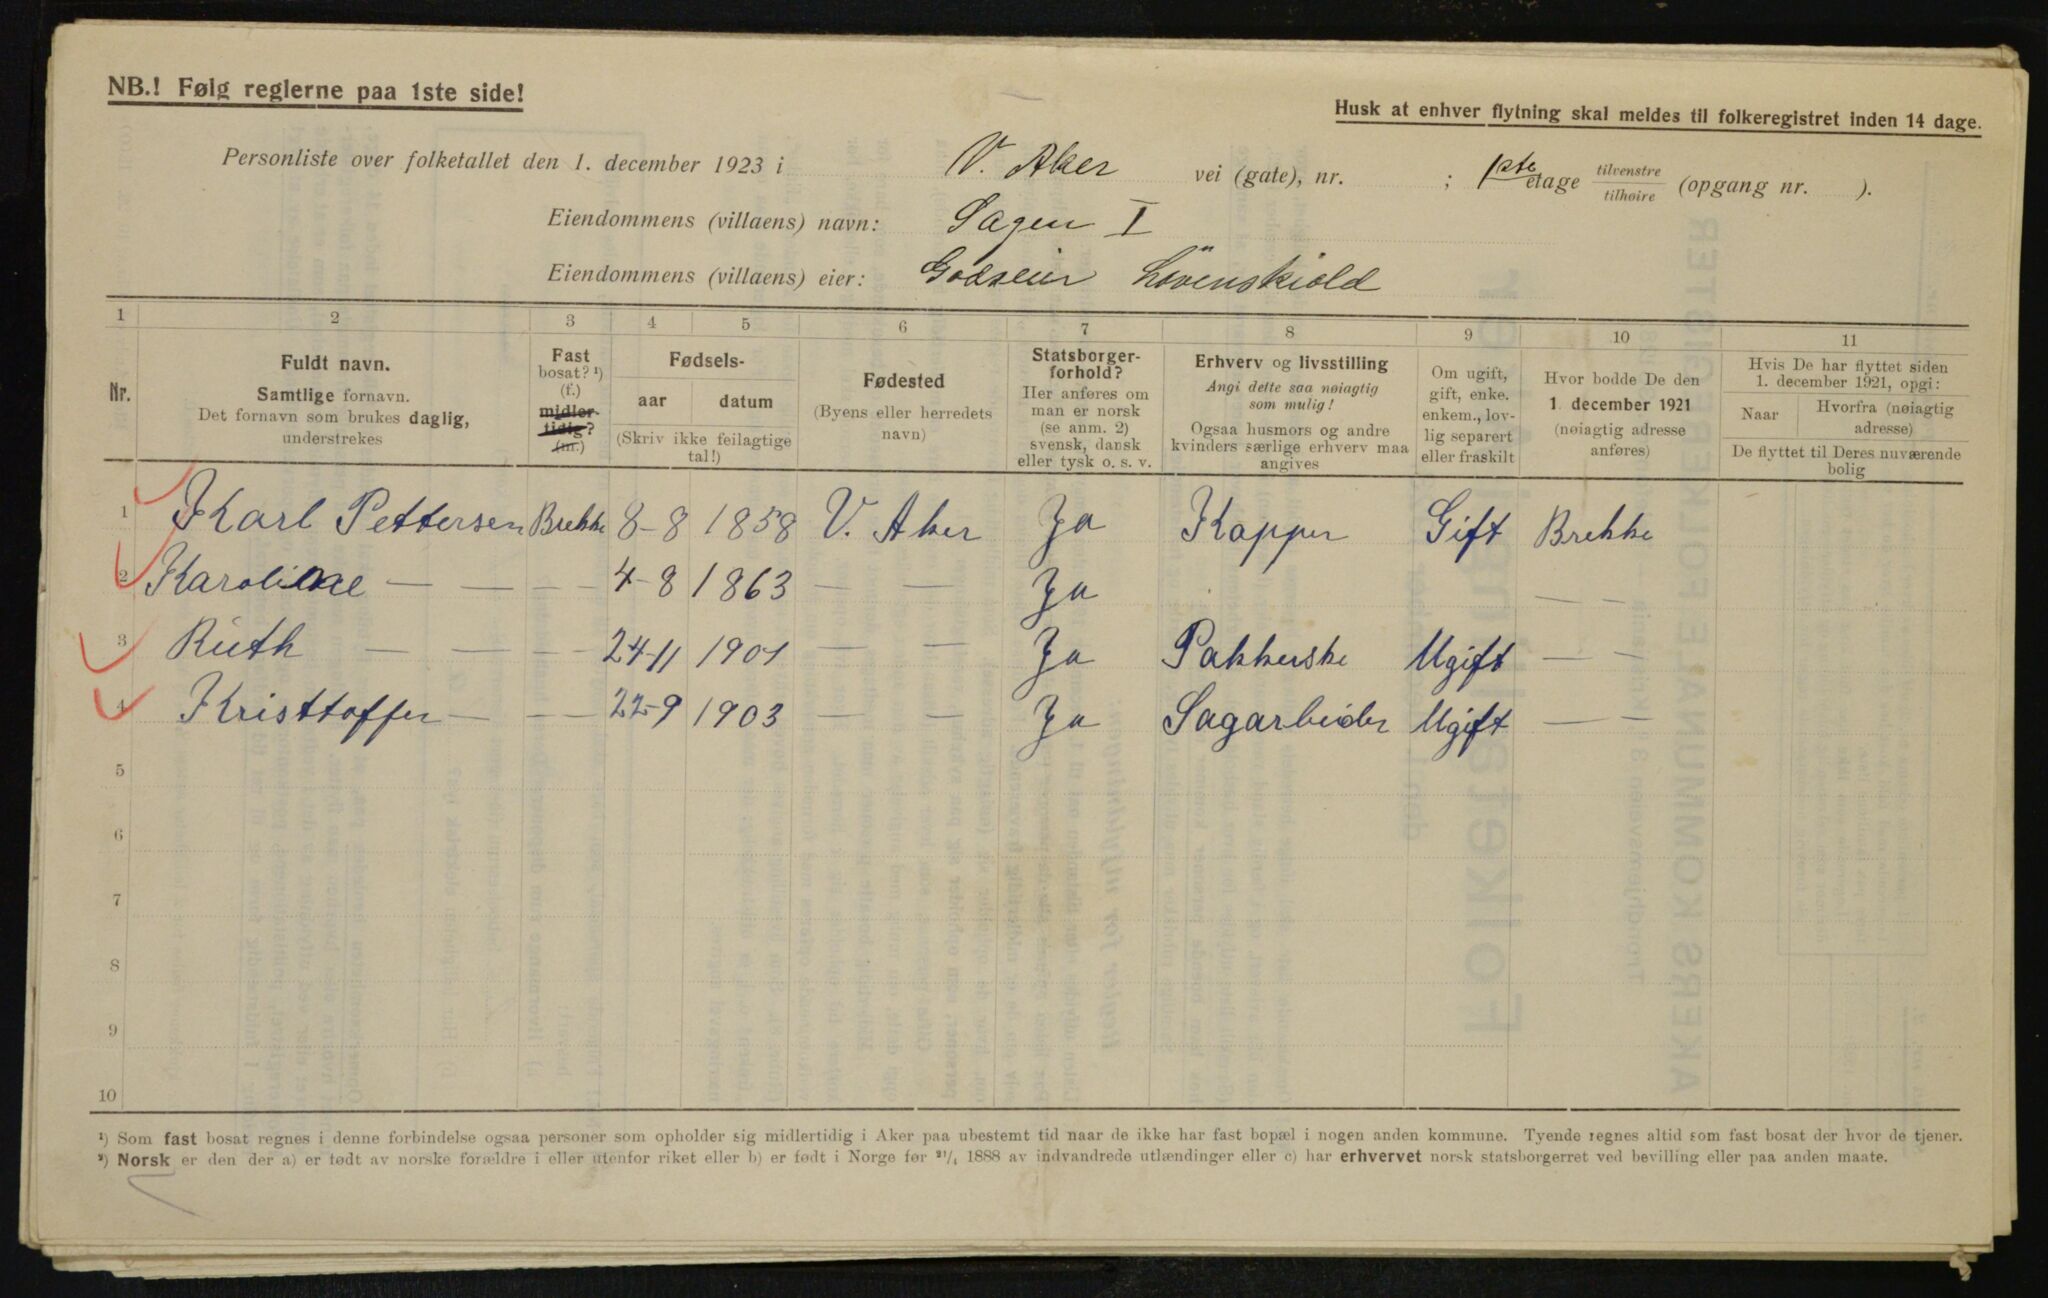 NB.! Følg reglerne paa 1ste side!
Husk at enhver flytning skal meldes til folkeregistret inden 14 dage.
Personliste over folketallet den 1. december 1923 i V. Aker vei (gate), nr. ; 1ste etage tilvenstre tilhøire (opgang nr. ).
Eiendommens (villaens) navn: Sagen I
Eiendommens (villaens) eier: Godseier Lövenskiold
1 2 3 4 5 6 7 8 9 10 11
Nr.
Fuldt navn.
Samtlige fornavn.
Det fornavn som brukes daglig,
understrekes
Fast
bosat? ¹)
(f.)
midler-
tidig?
(m.)
Fødsels-
aar datum
(Skriv ikke feilagtige
tal!)
Fødested
(Byens eller herredets
navn)
Statsborger-
forhold?
Her anføres om
man er norsk
(se anm. 2)
svensk, dansk
eller tysk o. s. v.
Erhverv og livsstilling
Angi dette saa nøiagtig
som mulig!
Ogsaa husmors og andre
kvinders særlige erhverv maa
angives
Om ugift,
gift, enke.
enkem., lov-
lig separert
eller fraskilt
Hvor bodde De den
1. december 1921
(nøiagtig adresse
anføres)
Hvis De har flyttet siden
1. december 1921, opgi:
Naar Hvorfra (nøiagtig
adresse)
De flyttet til Deres nuværende
bolig
1 Karl Pettersen Brekke 8-8 1858 V. Aker Ja Kapper Gift Brekke
2 Karoline — — — — 4-8 1863 — — Ja — —
3 Ruth — — — — 24-11 1901 — — Ja Pakkerske Ugift — —
4 Kristtoffer — — — 22-9 1903 — — Ja Sagarbeider Ugift — —
5
6
7
8
9
10
¹) Som fast bosat regnes i denne forbindelse ogsaa personer som opholder sig midlertidig i Aker paa ubestemt tid naar de ikke har fast bopæl i nogen anden kommune. Tyende regnes altid som fast bosat der hvor de tjener.
²) Norsk er den der a) er født av norske forældre i eller utenfor riket eller b) er født i Norge før ²¹/₄ 1888 av indvandrede utlændinger eller c) har erhvervet norsk statsborgerret ved bevilling eller paa anden maate.